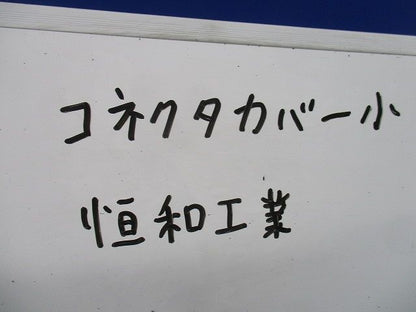 コネクタカバー小
恒和工業